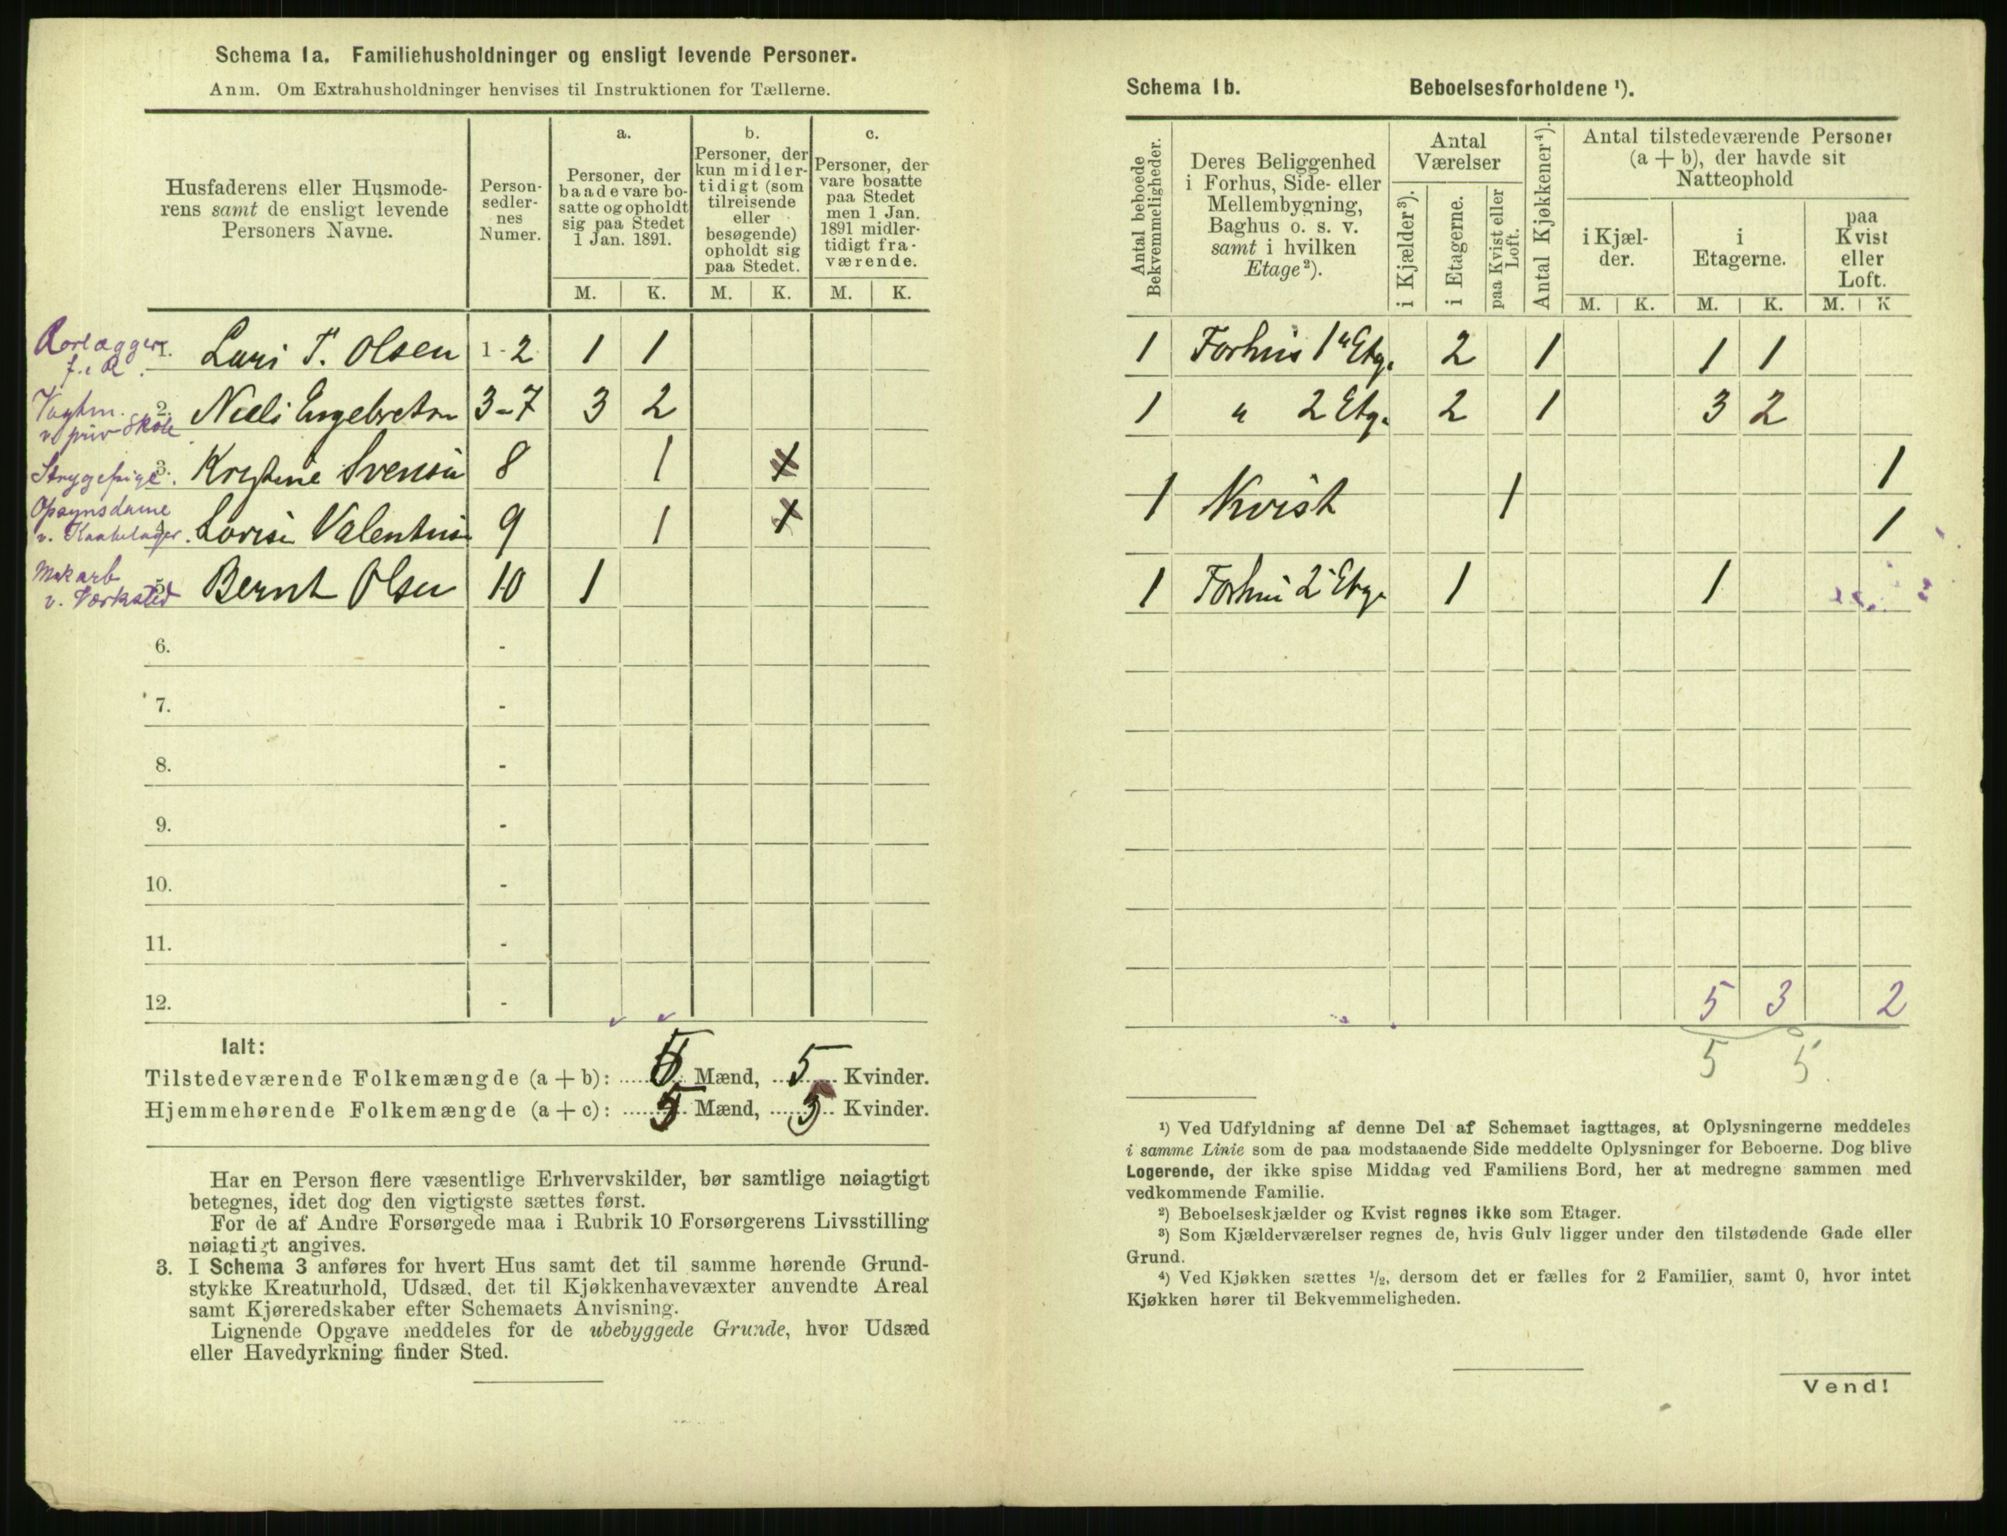 Schema 1a. Familiehusholdninger og ensligt levende Personer.
Anm. Om Extrahusholdninger henvises til Instruktionen for Tællerne.
Husfaderens eller Husmode-
rens samt de ensligt levende
Personers Navne.
Person-
sedler-
nes
Numer.
a.
Personer, der
baade vare bo-
satte og opholdt
sig paa Stedet
1 Jan. 1891.
b.
Personer, der
kun midler-
tidigt (som
tilreisende
eller
besøgende)
opholdt sig
paa Stedet.
c.
Personer, der
vare bosatte
paa Stedet
men 1 Jan.
1891 midler-
tidigt fra-
værende.
M. K. M. K. M. K.
Rørlægger
1. Lars T. Olsen 1-2 1 1
Vagtm.
v. priv Skole
2. Niels Engebretsen 3-7 3 2
Strygepige 3. Kristine Svensen 8 1
Opsynsdame
4. Lovise Valentin 9 1
v. Værksted 5. Bernt Olsen 10 1
6. -
7. -
8. -
9. -
10. -
11. -
12. -
Ialt:
Tilstedeværende Folkemængde (a + b): 5 Mænd, 5 Kvinder.
Hjemmehørende Folkemængde (a + c): 5 Mænd, 5 Kvinder.
Har en Person flere væsentlige Erhvervskilder, bør samtlige nøiagtigt
betegnes, idet dog den vigtigste sættes først.
For de af Andre Forsørgede maa i Rubrik 10 Forsørgerens Livsstilling
nøiagtigt angives.
3. I Schema 3 anføres for hvert Hus samt det til samme hørende Grund-
stykke Kreaturhold, Udsæd, det til Kjøkkenhavevæxter anvendte Areal
samt Kjøreredskaber efter Schemaets Anvisning.
Lignende Opgave meddeles for de ubebyggede Grunde, hvor Udsæd
eller Havedyrkning finder Sted.
Schema 1b. Beboelsesforholdene ¹).
Antal beboede
Bekvemmeligheder.
Deres Beliggenhed
i Forhus, Side- eller
Mellembygning,
Baghus o. s. v.
samt i hvilken
Etage²).
Antal
Værelser
i Kjælder³).
i Etagerne.
paa Kvist eller
Loft.
Antal Kjøkkener⁴).
Antal tilstedeværende Personer
(a + b), der havde sit
Natteophold
i Kjæl-
der.
i
Etagerne.
paa
Kvist
eller
Loft.
M. K. M. K. M. K
1 Forhus 1ª Etg. 2 1 1 1
1 " 2 Etg. 2 1 3 2
1
1 Kvist 1
1
1 Forhus 2 Etg. 1 1
5 3 2
5 5.
¹) Ved Udfyldning af denne Del af Schemaet iagttages, at Oplysningerne meddeles
i samme Linie som de paa modstaaende Side meddelte Oplysninger for Beboerne. Dog blive
Logerende, der ikke spise Middag ved Familiens Bord, her at medregne sammen med
vedkommende Familie.
²) Beboelseskjælder og Kvist regnes ikke som Etager.
³) Som Kjælderværelser regnes de, hvis Gulv ligger under den tilstødende Gade eller
Grund.
⁴) Ved Kjøkken sættes ¹/₂, dersom det er fælles for 2 Familier, samt 0, hvor intet
Kjøkken hører til Bekvemmeligheden.
Vend!